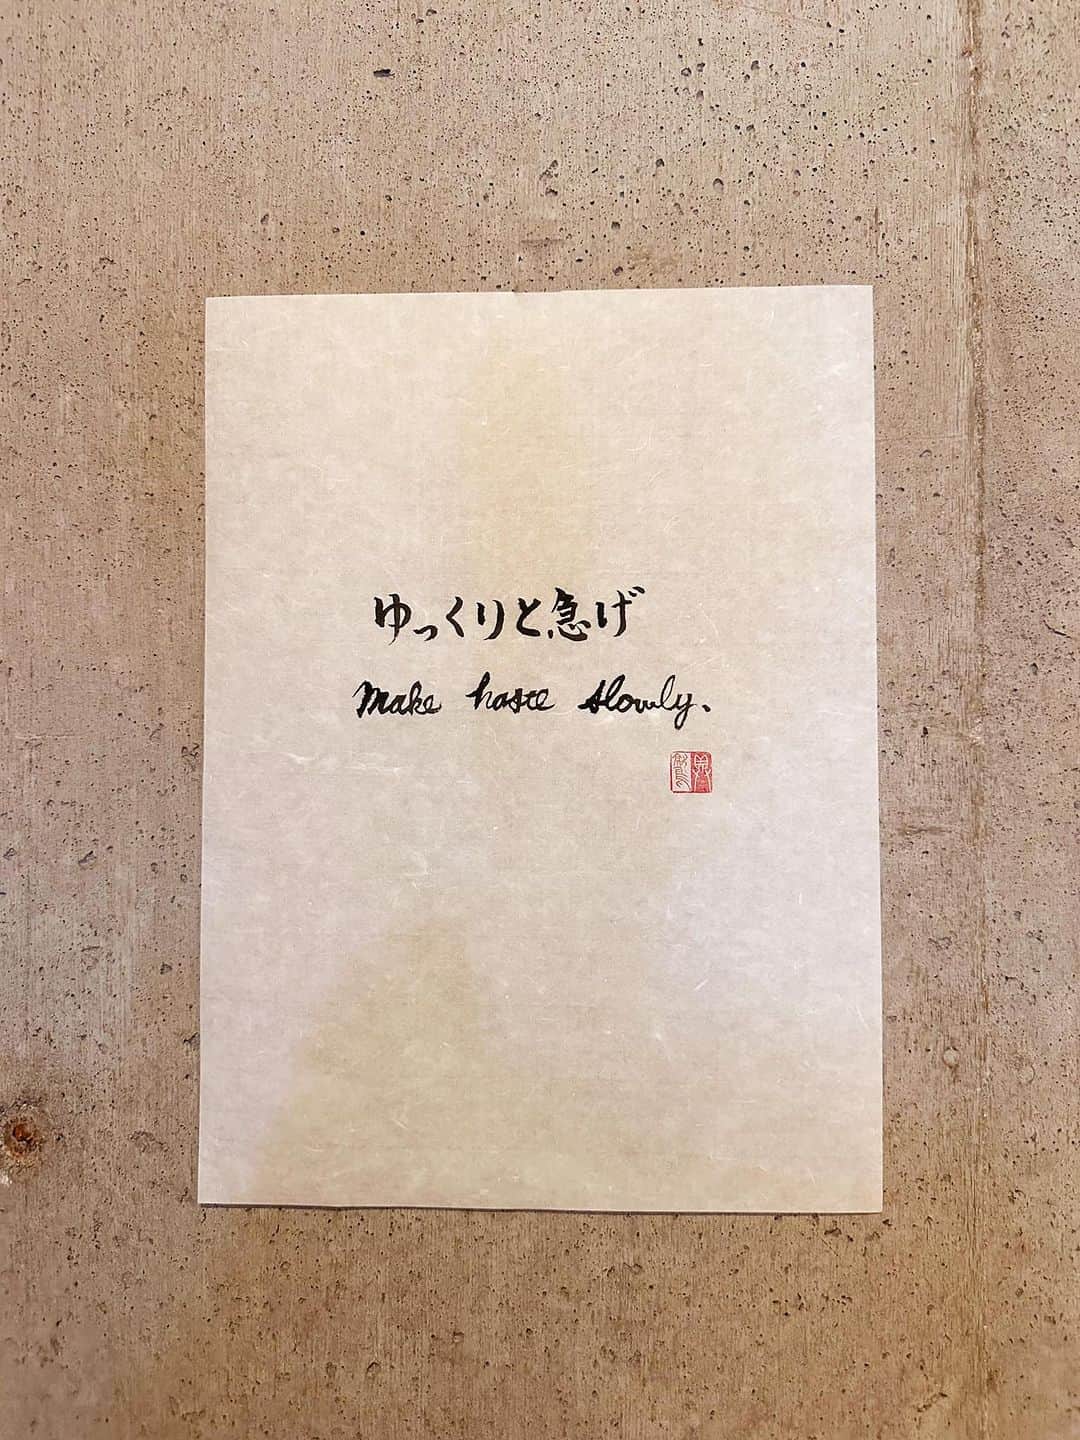 ゆっくりと急げ
Make haste slowly.